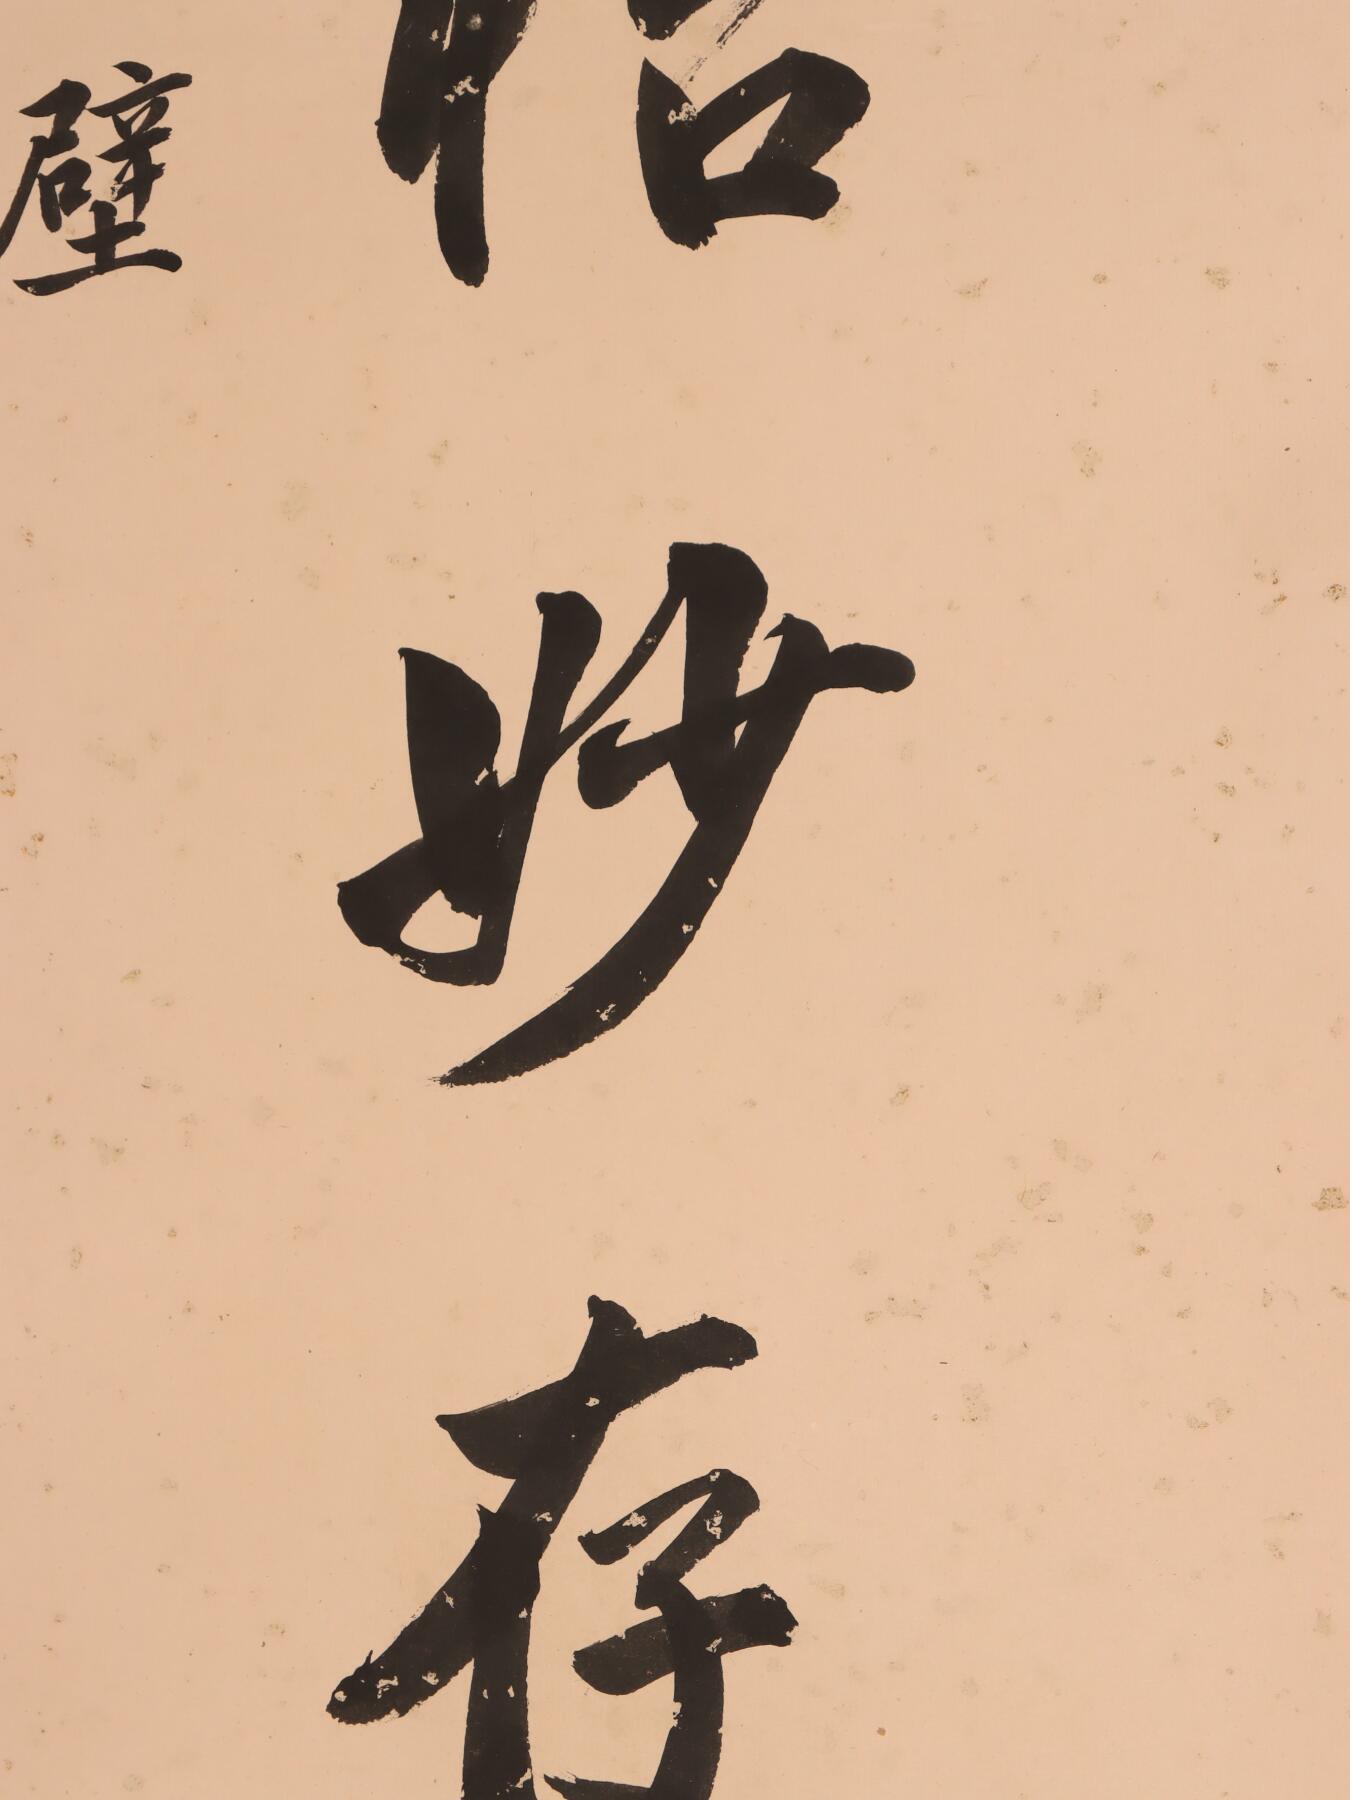 妙存
壁